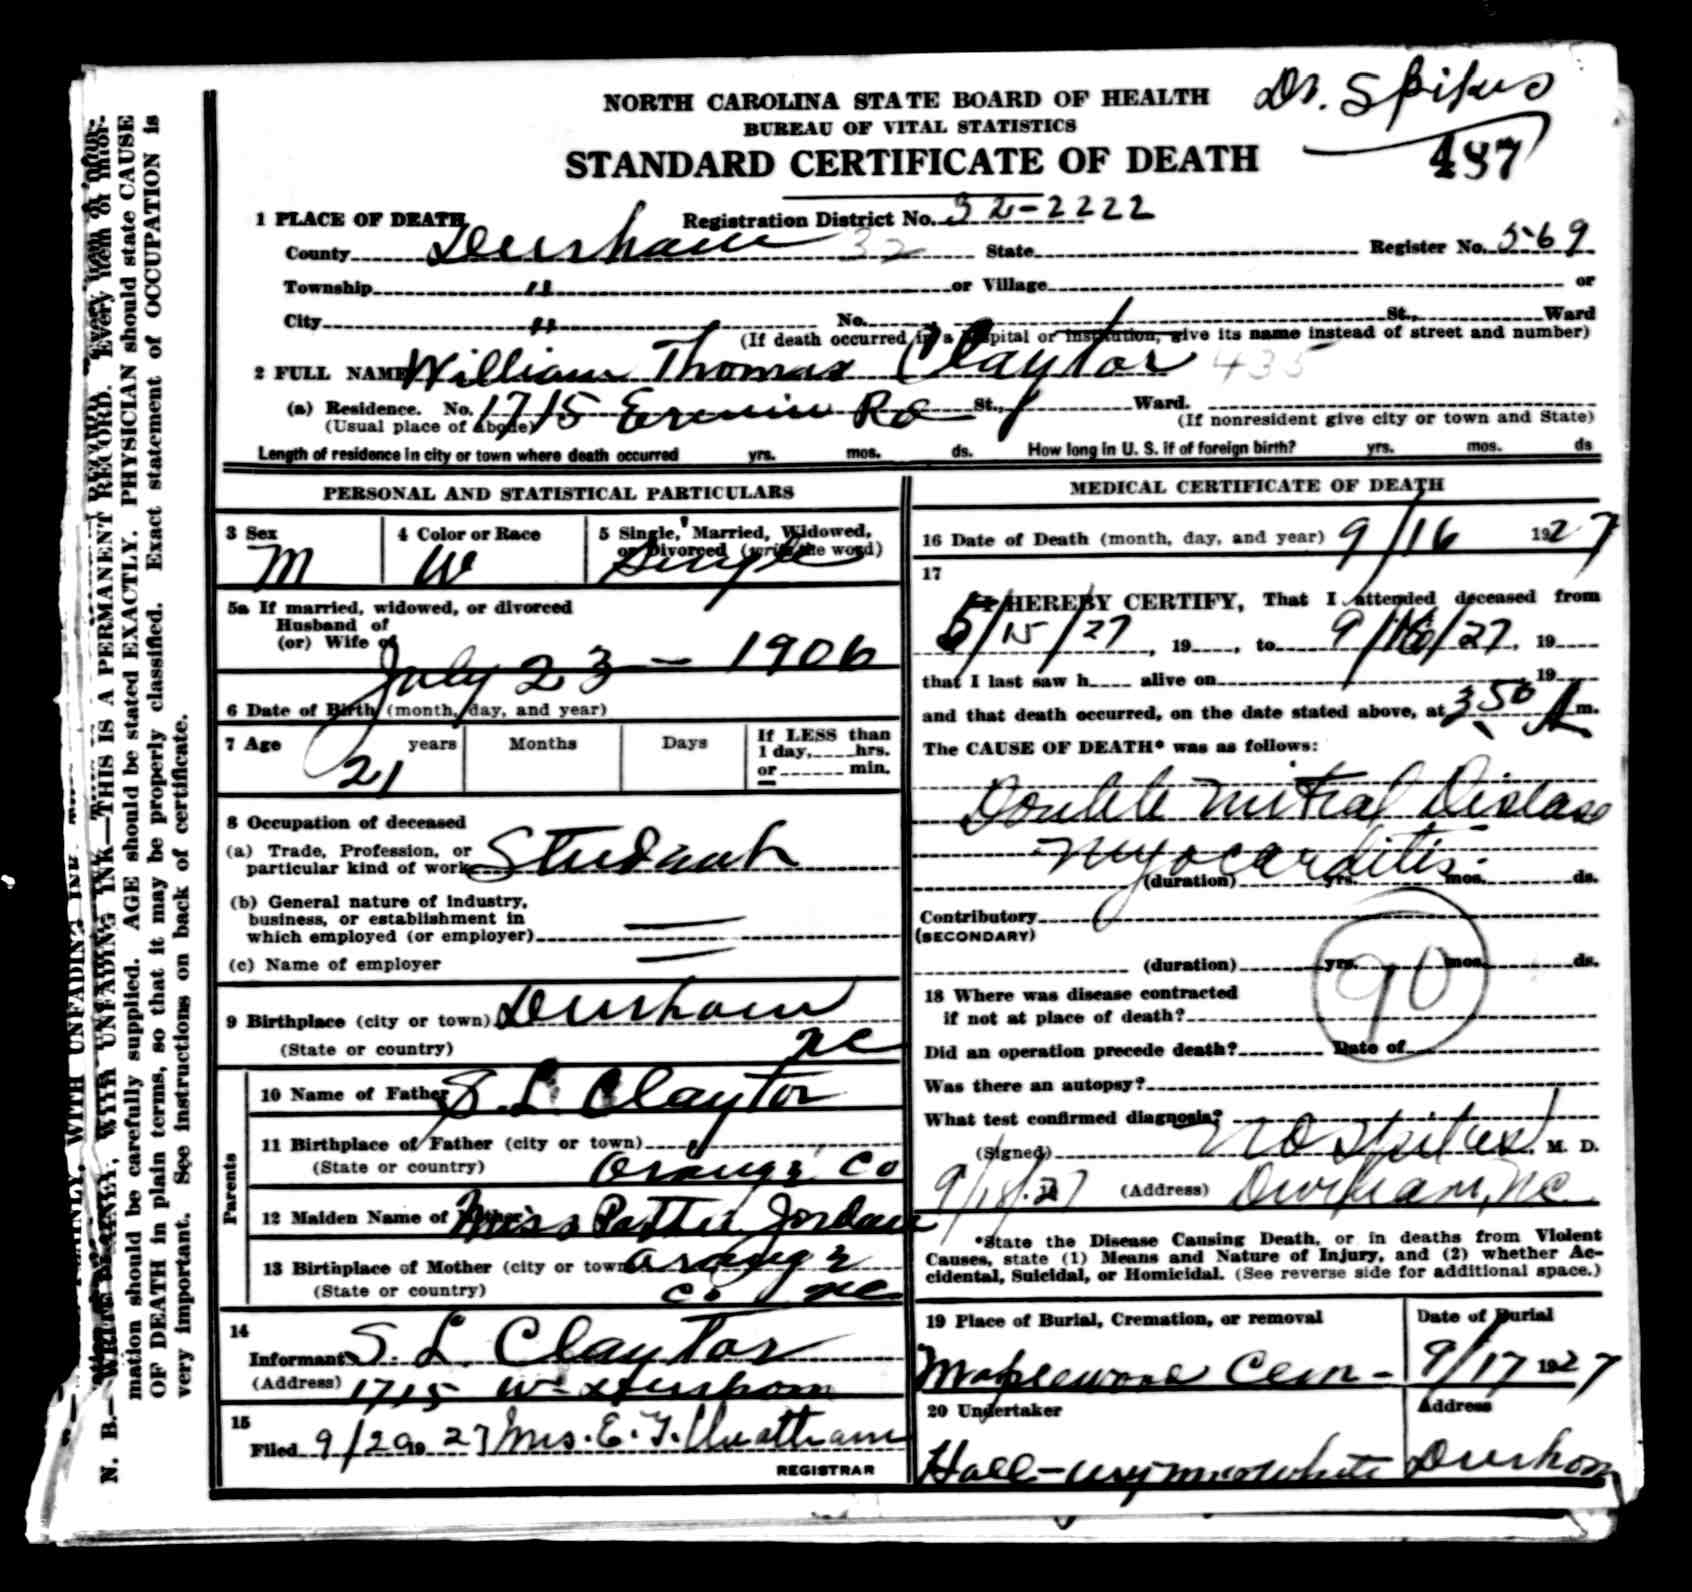 Dr. Spikes
NORTH CAROLINA STATE BOARD OF HEALTH
BUREAU OF VITAL STATISTICS
STANDARD CERTIFICATE OF DEATH
487
1 PLACE OF DEATH Registration District No. 32-2222
County Durham 32 State Register No. 569
Township " or Village or
City " No. St., Ward
(If death occurred in a hospital or institution, give its name instead of street and number)
2 FULL NAME William Thomas Claytor 435
(a) Residence. No. 1715 Erwin Rd St., Ward.
(Usual place of abode) (If nonresident give city or town and State)
Length of residence in city or town where death occurred yrs. mos. ds. How long in U. S. if of foreign birth? yrs. mos. ds
PERSONAL AND STATISTICAL PARTICULARS
3 Sex 4 Color or Race 5 Single, Married, Widowed,
or Divorced (write the word)
M W Single
5a If married, widowed, or divorced
Husband of
(or) Wife of
July 23 - 1906
6 Date of Birth (month, day, and year)
7 Age years Months Days If LESS than
1 day, hrs.
or min.
21
8 Occupation of deceased
(a) Trade, Profession, or
particular kind of work Student
(b) General nature of industry,
business, or establishment in
which employed (or employer)
(c) Name of employer
9 Birthplace (city or town) Durham
(State or country) NC
Parents
10 Name of Father S. L. Claytor
11 Birthplace of Father (city or town)
(State or country) Orange Co
12 Maiden Name of Mother Miss Pattie Jordan
13 Birthplace of Mother (city or town) Orange
(State or country) Co NC
14
Informant S. L. Claytor
(Address) 1715 W Durham
15
Filed 9/20 19 27 Mrs. E. T.
REGISTRAR
MEDICAL CERTIFICATE OF DEATH
16 Date of Death (month, day, and year) 9/16 1927
17
I HEREBY CERTIFY, That I attended deceased from
5/15/27, 19 , to 9/16/27, 19
that I last saw h alive on 19
and that death occurred, on the date stated above, at 3 50 A m.
The CAUSE OF DEATH* was as follows:
Double Mitral Disease
Myocarditis.
(duration) yrs. mos. ds.
Contributory
(SECONDARY)
(duration) yrs. mos. ds.
90
18 Where was disease contracted
if not at place of death?
Did an operation precede death? Date of
Was there an autopsy?
What test confirmed diagnosis?
(Signed) Spikes M. D.
9/18/27 (Address) Durham, NC
*State the Disease Causing Death, or in deaths from Violent
Causes, state (1) Means and Nature of Injury, and (2) whether Ac-
cidental, Suicidal, or Homicidal. (See reverse side for additional space.)
19 Place of Burial, Cremation, or removal Date of Burial
Maplewood Cem - 9/17 1927
20 Undertaker Address
Hall-Wynne & White Durham
N. B.—WRITE PLAINLY, WITH UNFADING INK—THIS IS A PERMANENT RECORD. Every item of infor-
mation should be carefully supplied. AGE should be stated EXACTLY. PHYSICIAN should state CAUSE
OF DEATH in plain terms, so that it may be properly classified. Exact statement of OCCUPATION is
very important. See instructions on back of certificate.